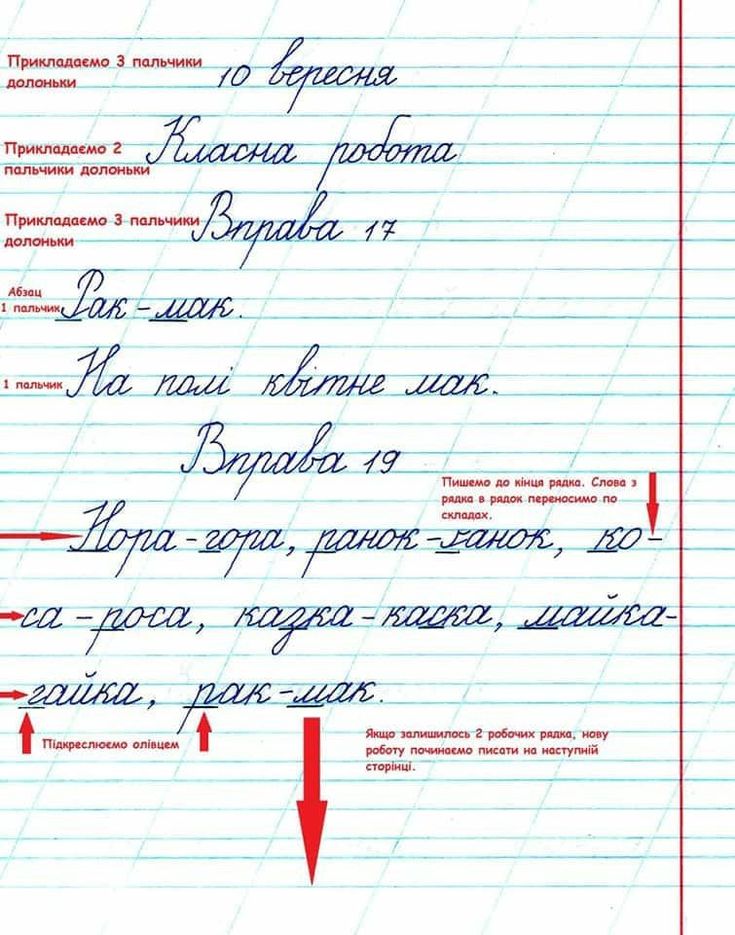 Прикладаємо 3 пальчики
долоньки
10 вересня
Прикладаємо 2
пальчики долоньки
Класна робота
Прикладаємо 3 пальчики
долоньки
Вправа 17
Абзац
1 пальчик
Рак-мак.
1 пальчик
На полі квітне мак.
Вправа 19
Пишемо до кінця рядка. Слова з
рядка в рядок переносимо по
складах.
Нора-гора, ранок-ганок, ко-
са-роса, казка-каска, майка-
гайка, рак-мак.
Підкреслюємо олівцем
Якщо залишилось 2 робочих рядка, нову
роботу починаємо писати на наступній
сторінці.